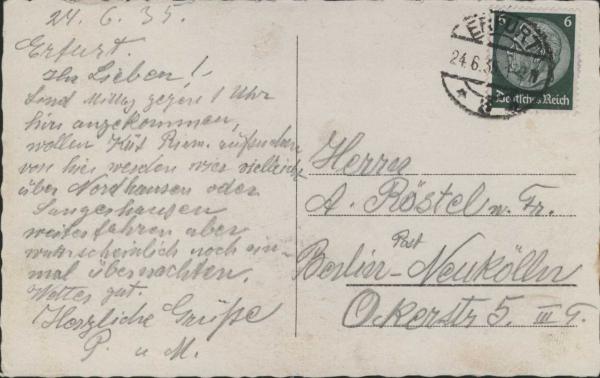 24. 6. 35.
Erfurt.
Ihr Lieben!
Sind Mittag gegen 1 Uhr
hier angekommen,
wollen
von hier werden wir vielleicht
über Nordhausen oder
Sangerhausen
weiterfahren aber
wahrscheinlich noch ein-
mal übernachten.
Wetter gut.
Herzliche Grüße
P. u M.
ERFURT
24.6.3
6 6
Deutsches Reich
Herrn
A. Röstel u. Fr.
Post
Berlin-Neukölln
Okerstr 5. III